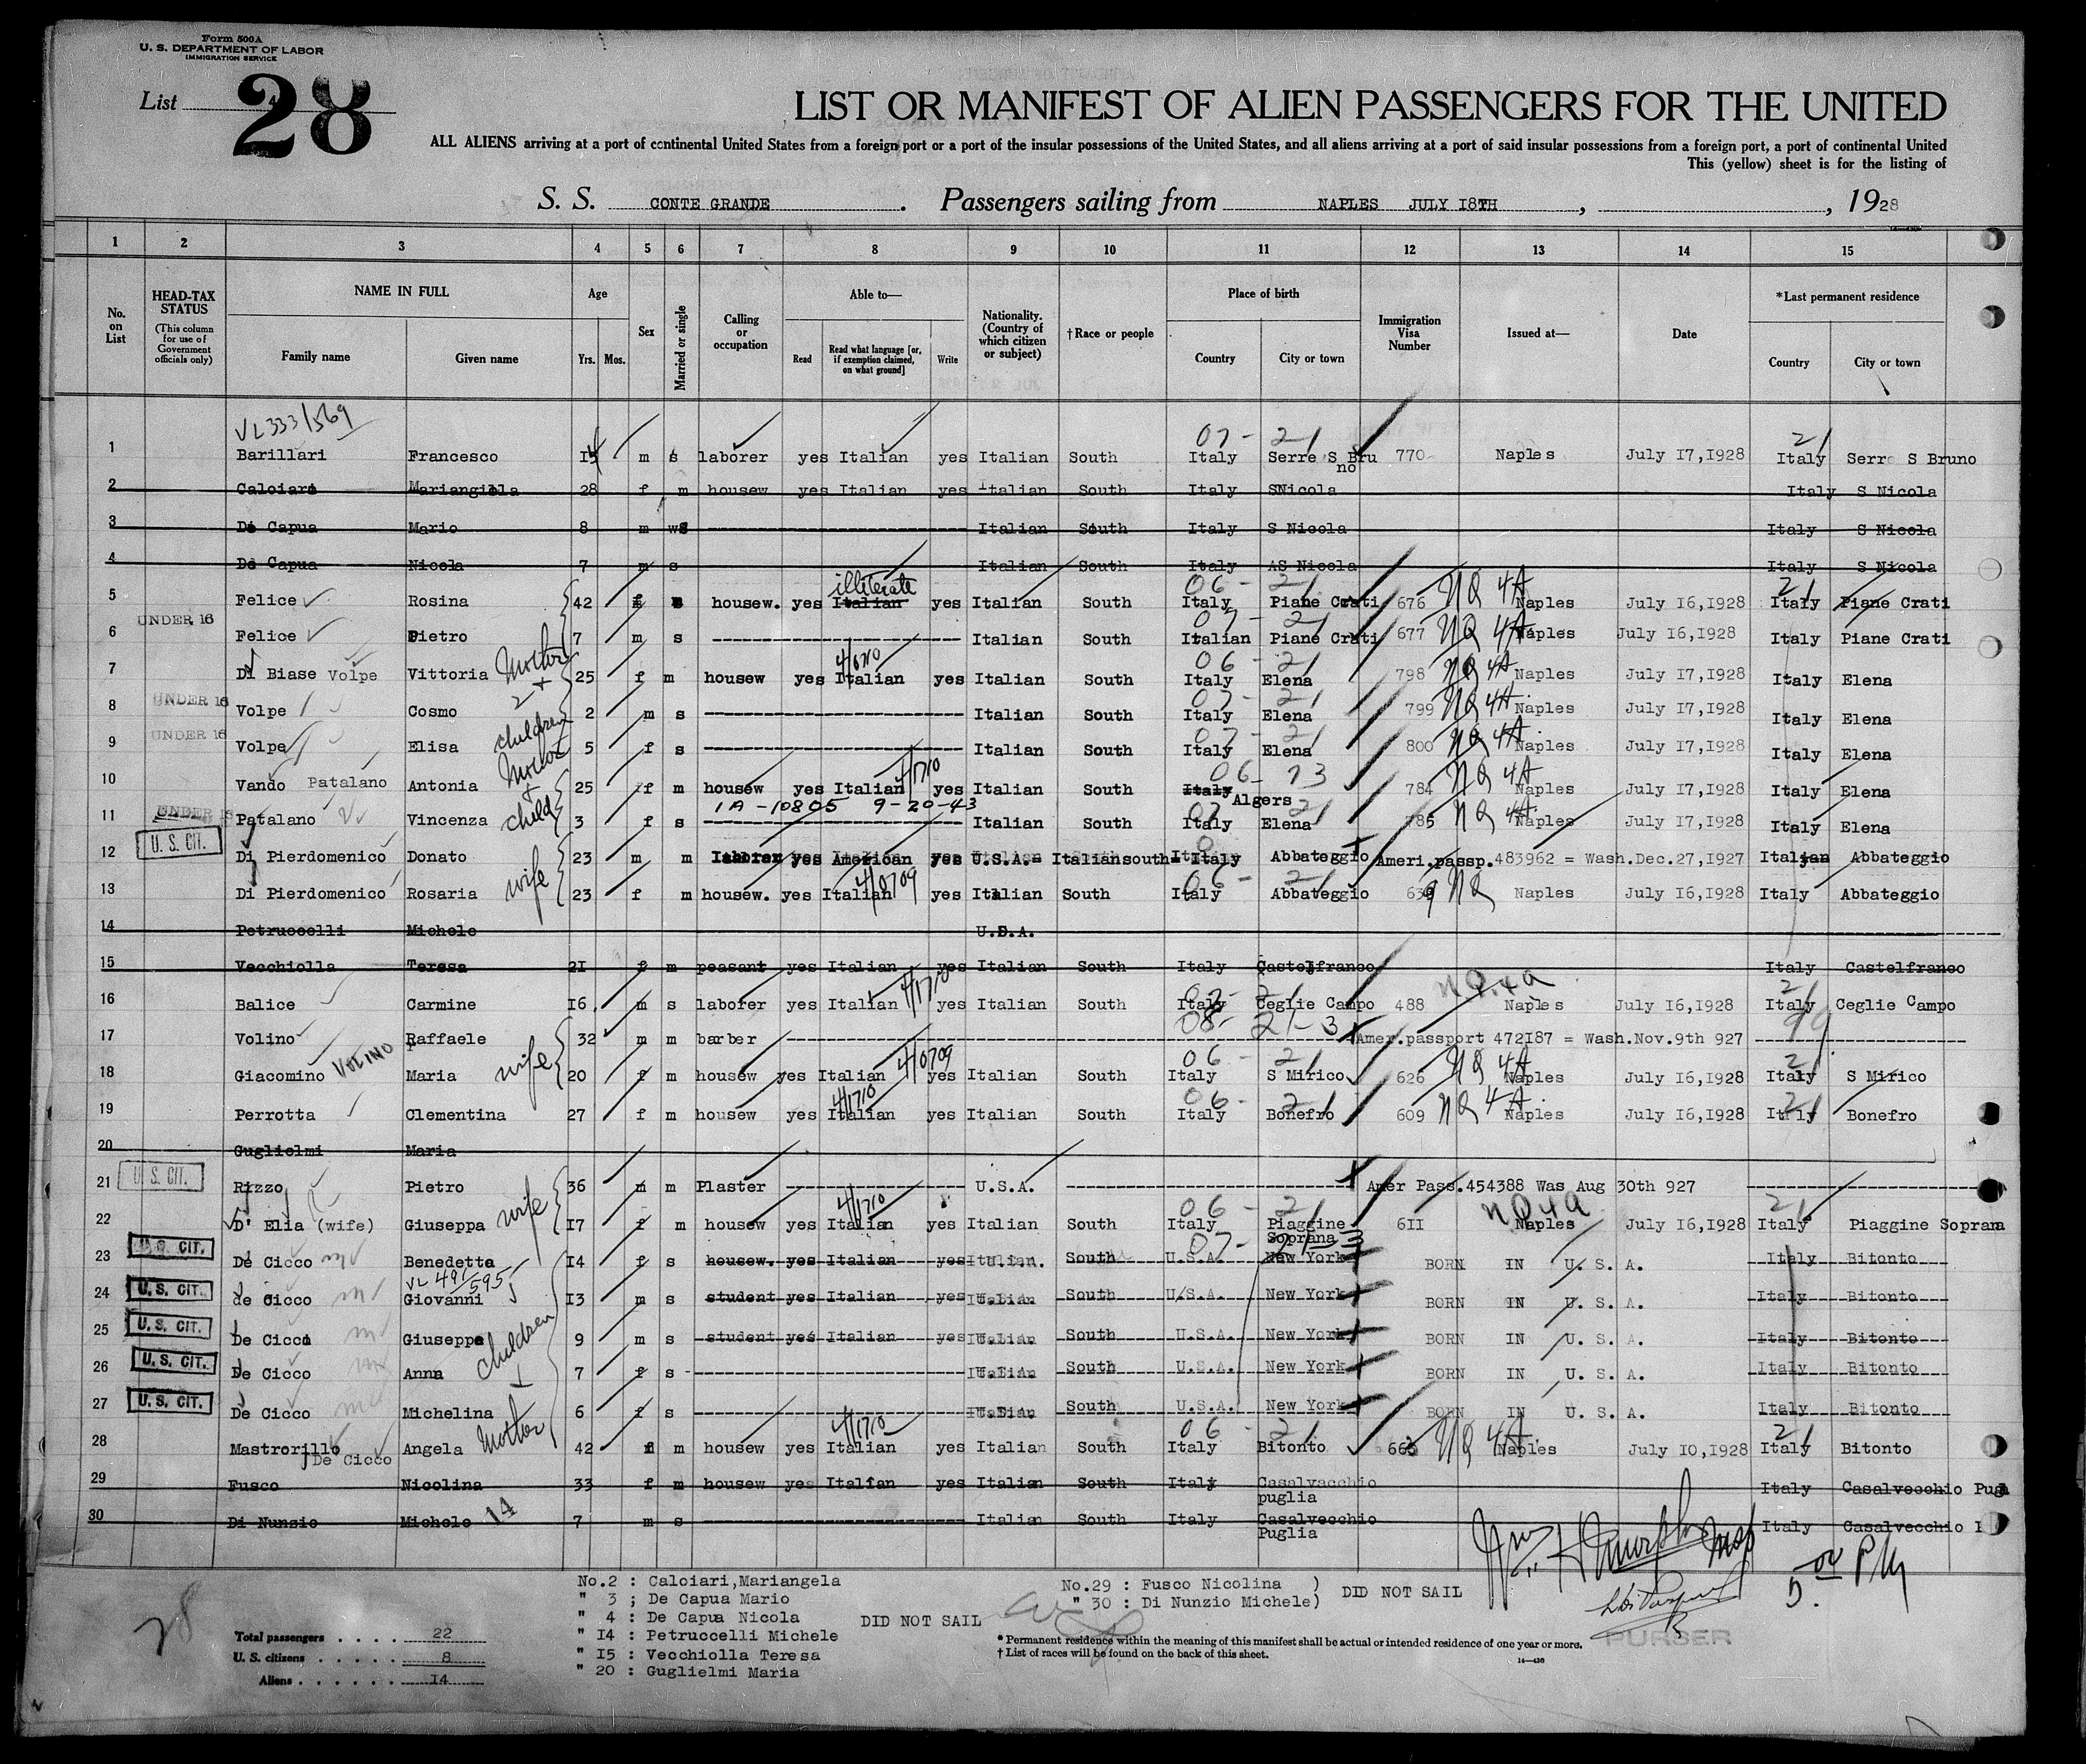 Form 500A
U. S. DEPARTMENT OF LABOR
IMMIGRATION SERVICE
List 28
LIST OR MANIFEST OF ALIEN PASSENGERS FOR THE UNITED
ALL ALIENS arriving at a port of continental United States from a foreign port or a port of the insular possessions of the United States, and all aliens arriving at a port of said insular possessions from a foreign port, a port of continental United
This (yellow) sheet is for the listing of
S. S. CONTE GRANDE . Passengers sailing from NAPLES JULY I8TH , , 1928
1 2 3 4 5 6 7 8 9 10 11 12 13 14 15
No. on List
HEAD-TAX STATUS
(This column for use of Government officials only)
NAME IN FULL
Family name Given name
Age
Yrs. Mos.
Sex
Married or single
Calling or occupation
Able to—
Read
Read what language [or, if exemption claimed, on what ground]
Write
Nationality. (Country of which citizen or subject)
†Race or people
Place of birth
Country City or town
Immigration Visa Number
Issued at—
Date
*Last permanent residence
Country City or town
VL 333/569
07- 21 21
1 Barillari Francesco m s laborer yes Italian yes Italian South Italy Serre S Bru no 770 Naples July I7,I928 Italy Serre S Bruno
2 Caloiaro Mariangiella 28 f m housew yes Italian yes Italian South Italy SNicola Italy S Nicola
3 De Capua Mario 8 m Italian South Italy S Nicola Italy S Nicola
4 De Capua Nicola 7 m s Italian South Italy AS Nicola Italy S Nicola
illiterate 06- 21 NQ 4A 21
5 Felice Rosina 42 f housew. yes Italian yes Italian South Italy Piane Crati 676 Naples July I6,I928 Italy Piane Crati
UNDER 16 07- 21
6 Felice Pietro 7 m s Italian South Italian Piane Crati 677 NQ 4A Naples July I6,I928 Italy Piane Crati
Mother 4/1710 06- 21
7 Di Biase Volpe Vittoria 25 f m housew yes Italian yes Italian South Italy Elena 798 NQ 4A Naples July I7,I928 Italy Elena
UNDER 16 2 + children 07- 21
8 Volpe Cosmo 2 m s Italian South Italy Elena 799 NQ 4A Naples July I7,I928 Italy Elena
UNDER 16 07- 21
9 Volpe Elisa 5 f s Italian South Italy Elena 800 NQ 4A Naples July I7,I928 Italy Elena
Mother + child 4/1710 06- 73
10 Vando Patalano Antonia 25 f m housew yes Italian yes Italian South Italy Algers 784 NQ 4A Naples July I7,I928 Italy Elena
1A-10805 9-20-43
UNDER 16 07 21
11 Patalano Vincenza 3 f s Italian South Italy Elena 785 NQ 4A Naples July I7,I928 Italy Elena
U. S. CIT.
12 Di Pierdomenico Donato 23 m m laborer yes American yes U.S.A. Italiansouth Italy Abbateggio Ameri.passp.483962 = Wash.Dec.27,I927 Italian Abbateggio
wife 06- 21
13 Di Pierdomenico Rosaria 23 f m housew. yes Italian yes Italian South Italy Abbateggio NQ Naples July I6,I928 Italy Abbateggio
14 Petruccelli Michele U.S.A.
15 Vecchiolla Teresa 2I f m peasant yes Italian yes Italian South Italy Castelfranco Italy Castelfranco
4/1710 NQ.4a 21
16 Balice Carmine I6 m s laborer yes Italian yes Italian South Italy Ceglie Campo 488 Naples July I6,I928 Italy Ceglie Campo
08- 21-3 99
17 Volino Raffaele 32 m m barber Amer.passport 472I87 = Wash.Nov.9th 927
VOLINO wife 4/0709 06- 21 21
18 Giacomino Maria 20 f m housew yes Italian yes Italian South Italy S Mirico 626 NQ 4A Naples July I6,I928 Italy S Mirico
4/1710 06- 21 21
19 Perrotta Clementina 27 f m housew yes Italian yes Italian South Italy Bonefro 609 NQ 4A Naples July I6,I928 Italy Bonefro
20 Guglielmi Maria
U. S. CIT.
21 Rizzo Pietro 36 m m Plaster U.S.A. Amer Pass.454388 Was Aug 30th 927
wife 4/1710 06- 21 NQ4a 21
22 D' Elia (wife) Giuseppa I7 f m housew yes Italian yes Italian South Italy Piaggine Soprana 6II Naples July I6,I928 Italy Piaggine Soprana
U. S. CIT. 07-
23 De Cicco Benedetta I4 f s housew. yes Italian yes Italian. South U.S.A. New York BORN IN U. S. A. Italy Bitonto
U. S. CIT. VL 491/595
24 de Cicco Giovanni I3 m s student yes Italian yes Italian South U.S.A. New York BORN IN U. S. A. Italy Bitonto
U. S. CIT.
25 De Cicco Giuseppe 9 m s student yes Italian yes Italian South U.S.A. New York BORN IN U. S. A. Italy Bitonto
U. S. CIT. children +
26 De Cicco Anna 7 f s Italian South U.S.A. New York BORN IN U. S. A. Italy Bitonto
U. S. CIT.
27 De Cicco Michelina 6 f s Italian South U.S.A. New York BORN IN U. S. A. Italy Bitonto
Mother 4/1710 06- 21 21
28 Mastrorillo De Cicco Angela 42 f m housew yes Italian yes Italian South Italy Bitonto 663 NQ 4A Naples July I0,I928 Italy Bitonto
29 Fusco Nicolina 33 f m housew yes Italian yes Italian South Italy Casalvacchio puglia Italy Casalvecchio
14
30 Di Nunzio Michele 7 m s Italian South Italy Casalvecchio Puglia Italy Casalvecchio
5.04 PM
28
No.2 : Caloiari,Mariangela
" 3 ; De Capua Mario
" 4 : De Capua Nicola
" I4 : Petruccelli Michele
" I5 : Vecchiolla Teresa
" 20 : Guglielmi Maria
DID NOT SAIL
No.29 : Fusco Nicolina )
" 30 : Di Nunzio Michele)
DID NOT SAIL
Total passengers . . . . 22
U. S. citizens . . . . . 8
Aliens . . . . . . I4
PURSER
* Permanent residence within the meaning of this manifest shall be actual or intended residence of one year or more.
† List of races will be found on the back of this sheet.
14—430